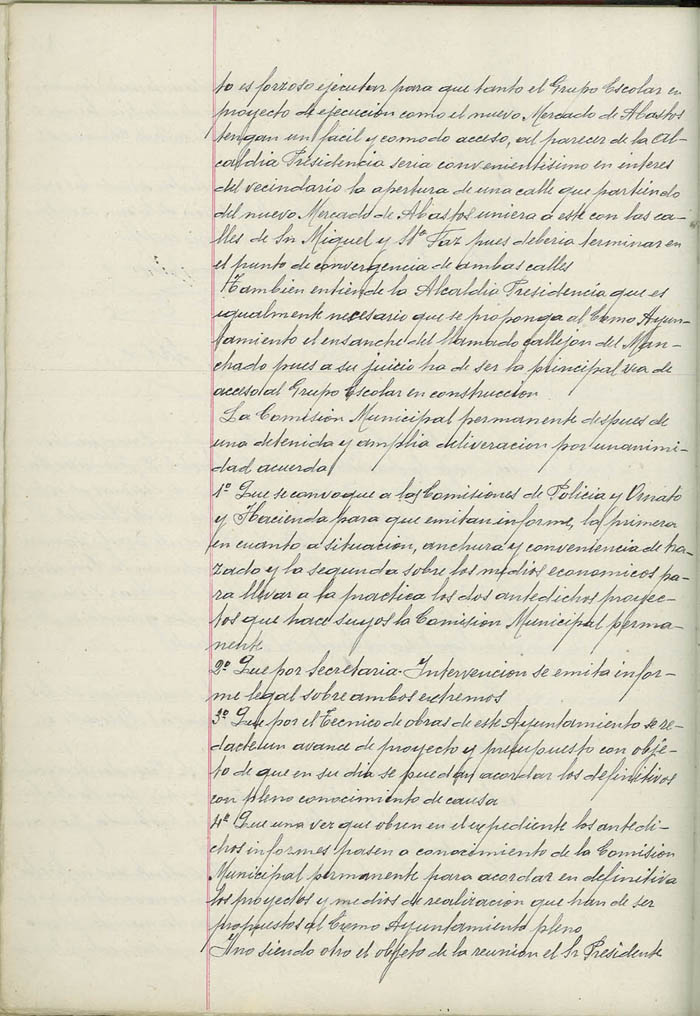 to es forzoso ejecutar para que tanto el Grupo Escolar en
proyecto de ejecucion como el nuevo Mercado de Abastos
tengan un facil y comodo acceso, al parecer de la Al-
caldia Presidencia seria convenientisimo en interes
del vecindario la apertura de una calle que partiendo
del nuevo Mercado de Abastos uniera á este con las ca-
lles de Sn Miguel y Stª Faz pues deberia terminar en
el punto de convergencia de ambas calles
Tambien entiende la Alcaldia Presidencia que es
igualmente necesario que se proponga al Excmo Ayun-
tamiento el ensanche del llamado callejon del Man-
chado pues a su juicio ha de ser la principal via de
acceso al Grupo Escolar en construccion
La Comision Municipal permanente despues de
una detenida y amplia deliveracion por unanimi-
dad acuerda
1º Que se convoque a las Comisiones de Policia y Ornato
y Hacienda para que emitan informe, la primera
en cuanto a situacion, anchura y conveniencia de tra-
zado y la segunda sobre los medios economicos pa-
ra llevar a la practica los dos antedichos proyec-
tos que hace suyos la Comision Municipal perma-
nente
2º Que por Secretaria-Intervencion se emita infor-
me legal sobre ambos extremos
3º Que por el Tecnico de obras de este Ayuntamiento se re-
dacte un avance de proyecto y presupuesto con obje-
to de que en su dia se puedan acordar los definitivos
con pleno conocimiento de causa
4º Que una vez que obren en el expediente los antedi-
chos informes pasen a conocimiento de la Comision
Municipal permanente para acordar en definitiva
los proyectos y medios de realizacion que han de ser
propuestos al Excmo Ayuntamiento pleno
Y no siendo otro el objeto de la reunion el Sr Presidente